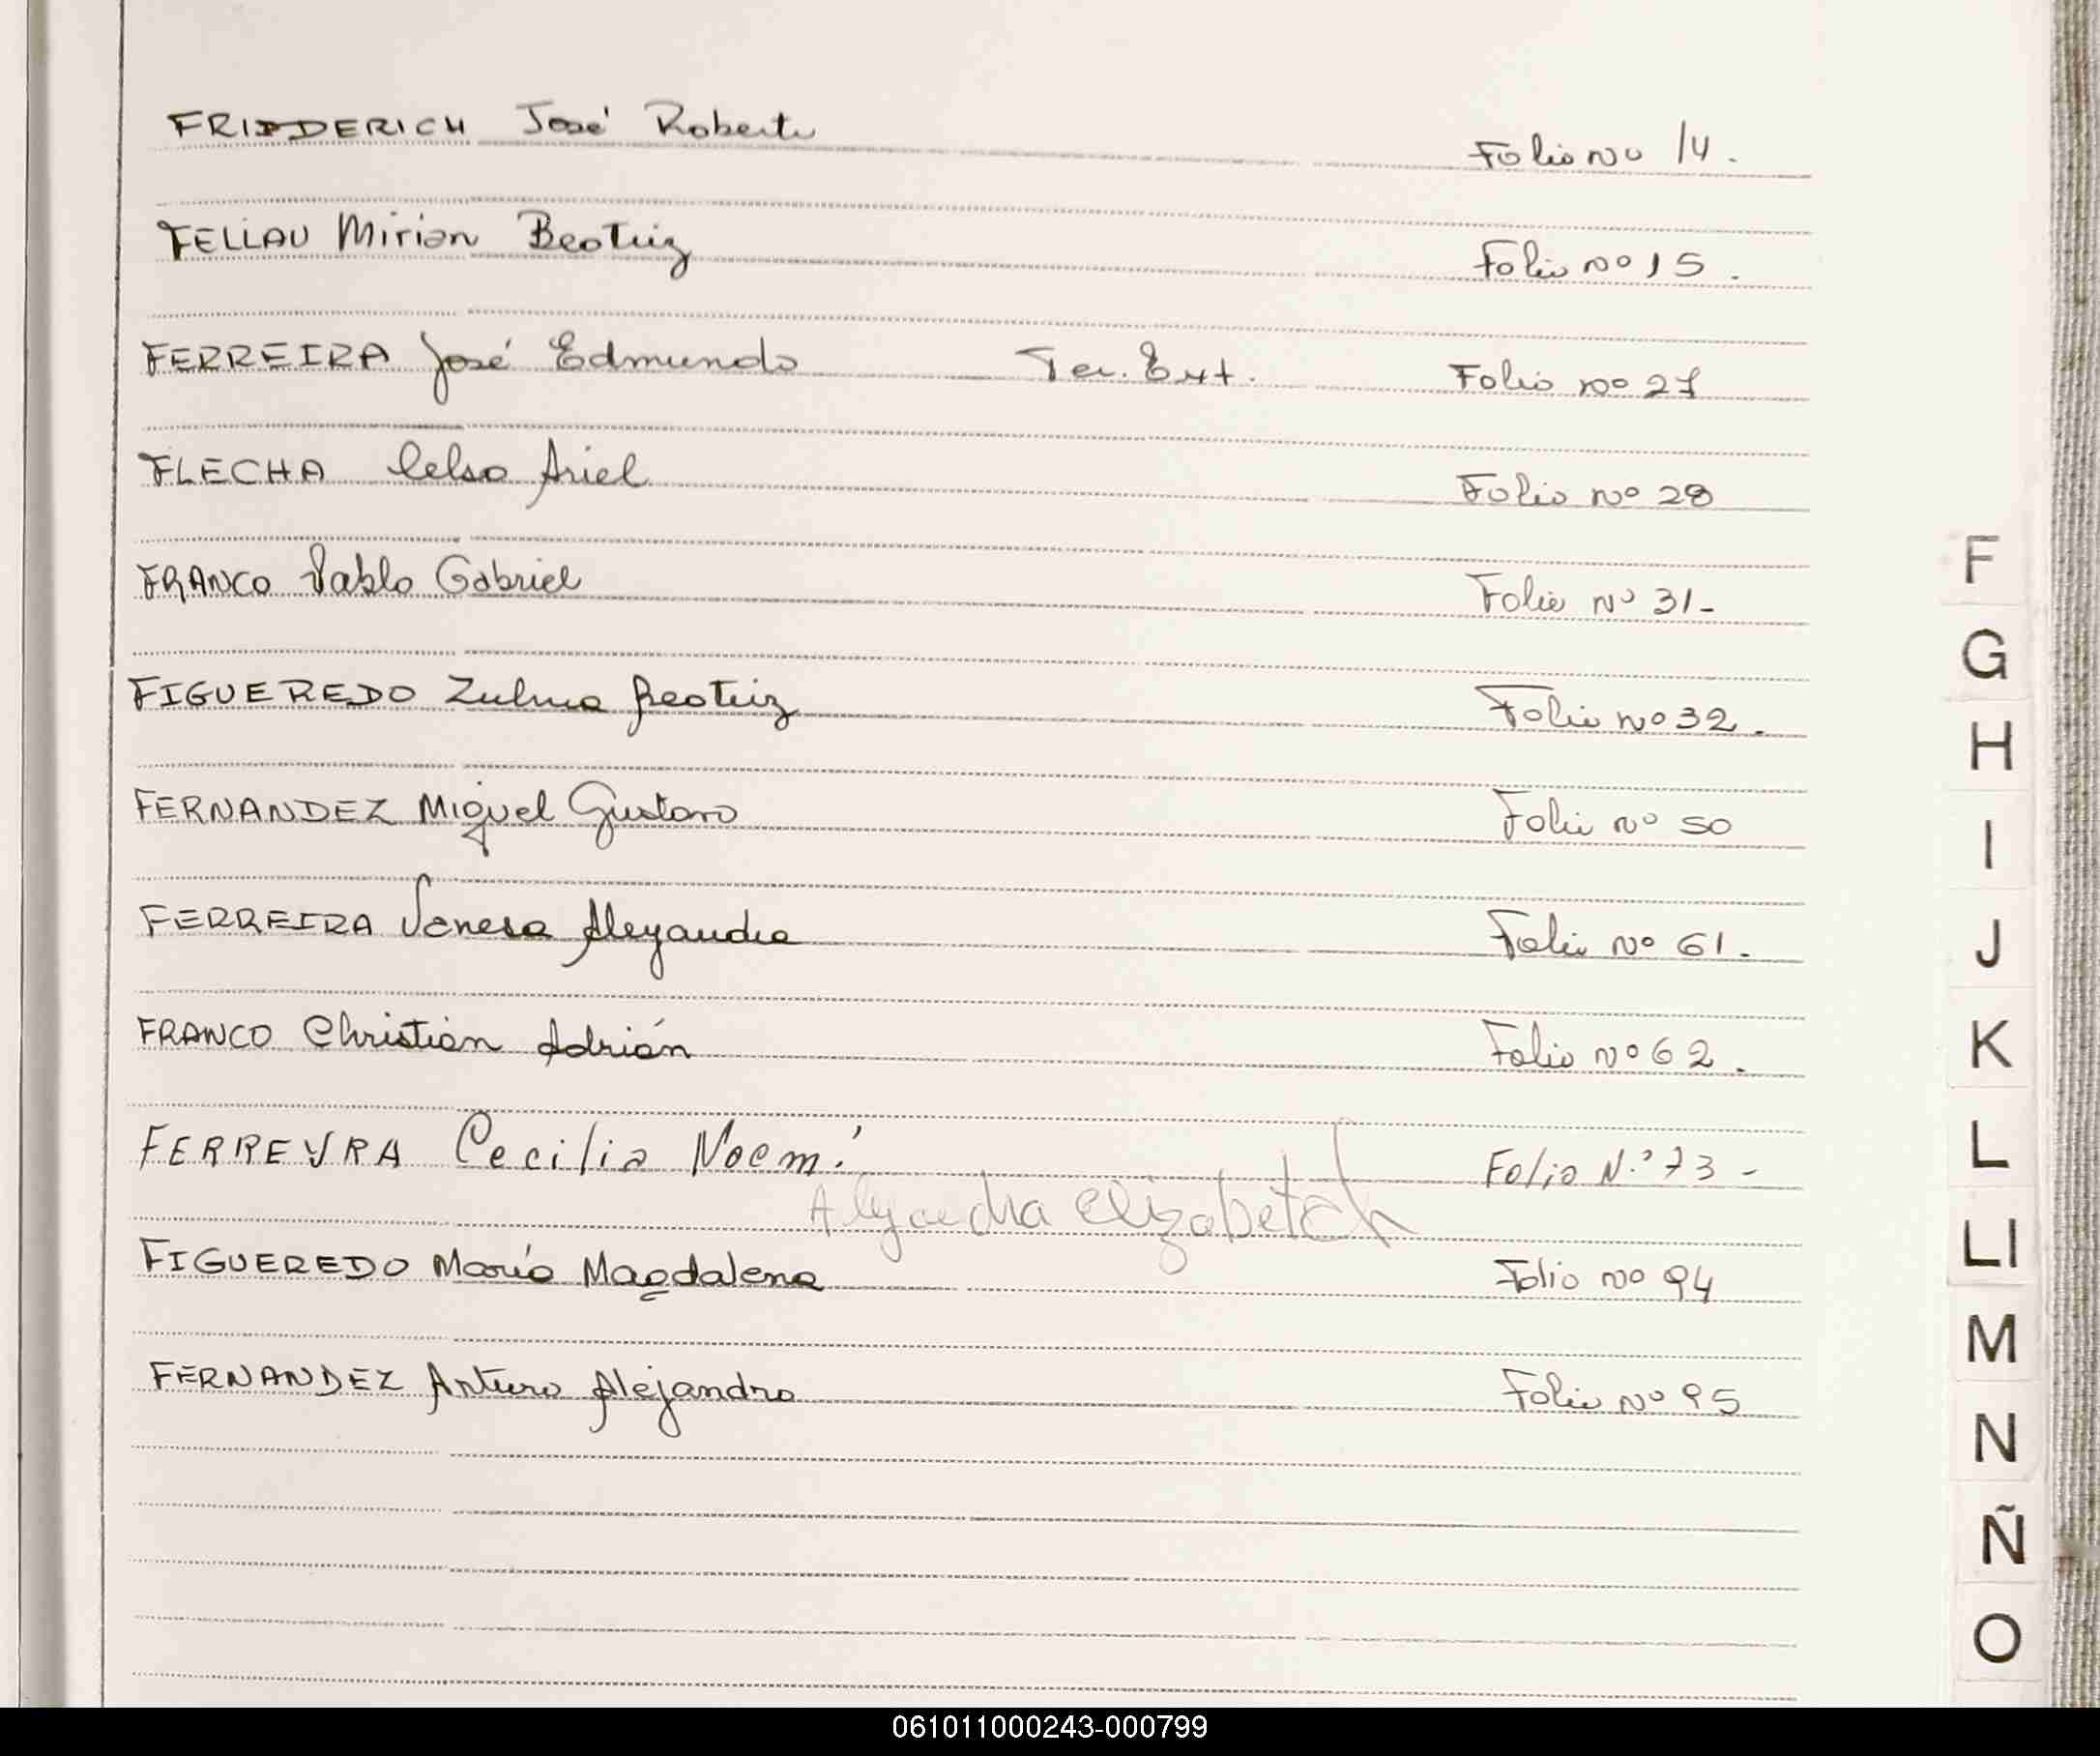 FRIEDERICH José Roberto Folio No 14.
FELLAU Mirian Beatriz Folio nº 15.
FERREIRA José Edmundo Ter. Ext. Folio nº 27
FLECHA Celso Ariel Folio nº 28
FRANCO Pablo Gabriel Folio Nº 31-
FIGUEREDO Zulma Beatriz Folio Nº 32.
FERNANDEZ Miguel Gustavo Folio Nº 50
FERREIRA Vanesa Alejandra Folio Nº 61.
FRANCO Christián Adrián Folio Nº 62.
FERREYRA Cecilia Noemí Folio N.º 73-
Elizabetch
FIGUEREDO María Magdalena Folio nº 94
FERNANDEZ Arturo Alejandro Folio Nº 95
F
G
H
I
J
K
L
Ll
M
N
Ñ
O
061011000243-000799